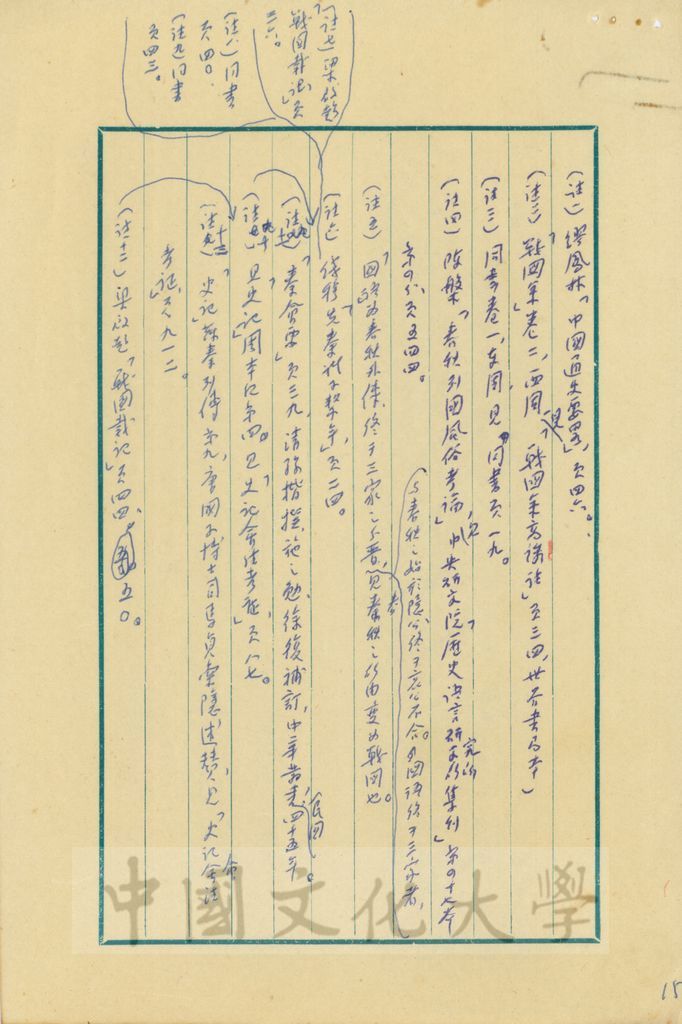 (註一) 繆鳳林「中國通史要略」,頁四六。
(註二)「戰國策」卷二,西周,見「戰國策高誘註」頁三四,世界書局本)
(註三) 同書卷一,東周,見同書頁一九。
(註四) 陳槃「春秋列國風俗考論」,見「中央研究院歷史語言研究所集刊」第四十七本
第四分,頁五四四。
與春秋之始於隱公終于哀公不合。國語終于三家者,
(註五)「國語」為春秋外傳,終于三家之分晉,見春秋之所由變為戰國也。
(註六) 錢穆「先秦諸子繫年」,頁二四。
(註七) 梁啟超
「戰國載記」頁
三六。
(註八) 同書
頁四〇。
(註九) 同書
頁四三。
「秦會要」頁三九,清孫楷撰,施之勉、徐復補訂,中華叢書,民國四十五年。
(註十) 見「史記」周本紀第四。見「史記會注考證」,頁八七。
「史記」蘇秦列傳第九,唐國子博士司馬貞索隱述贊,見「史記會注
考證」頁九一二。
(註十二) 梁啟超「戰國載記」頁四四、五〇。
中國文化大學
15